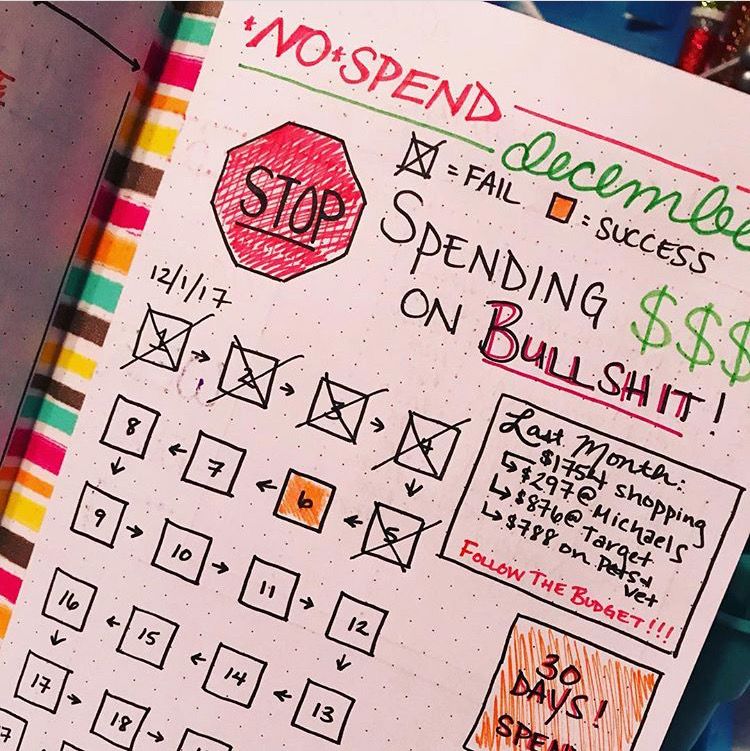 *NO*SPEND
decembe
= FAIL
= SUCCESS
STOP
SPENDING
ON BULLSHIT!
$$$
12/1/17
1 2 3 4
8 7 6 5
9 10 11 12
16 15 14 13
17 18
17
Last Month:
$1754 shopping
$297@Michaels
$876@ Target
$788 on Pets+
vet
FOLLOW THE BUDGET!!!
30
DAYS!
SPEN